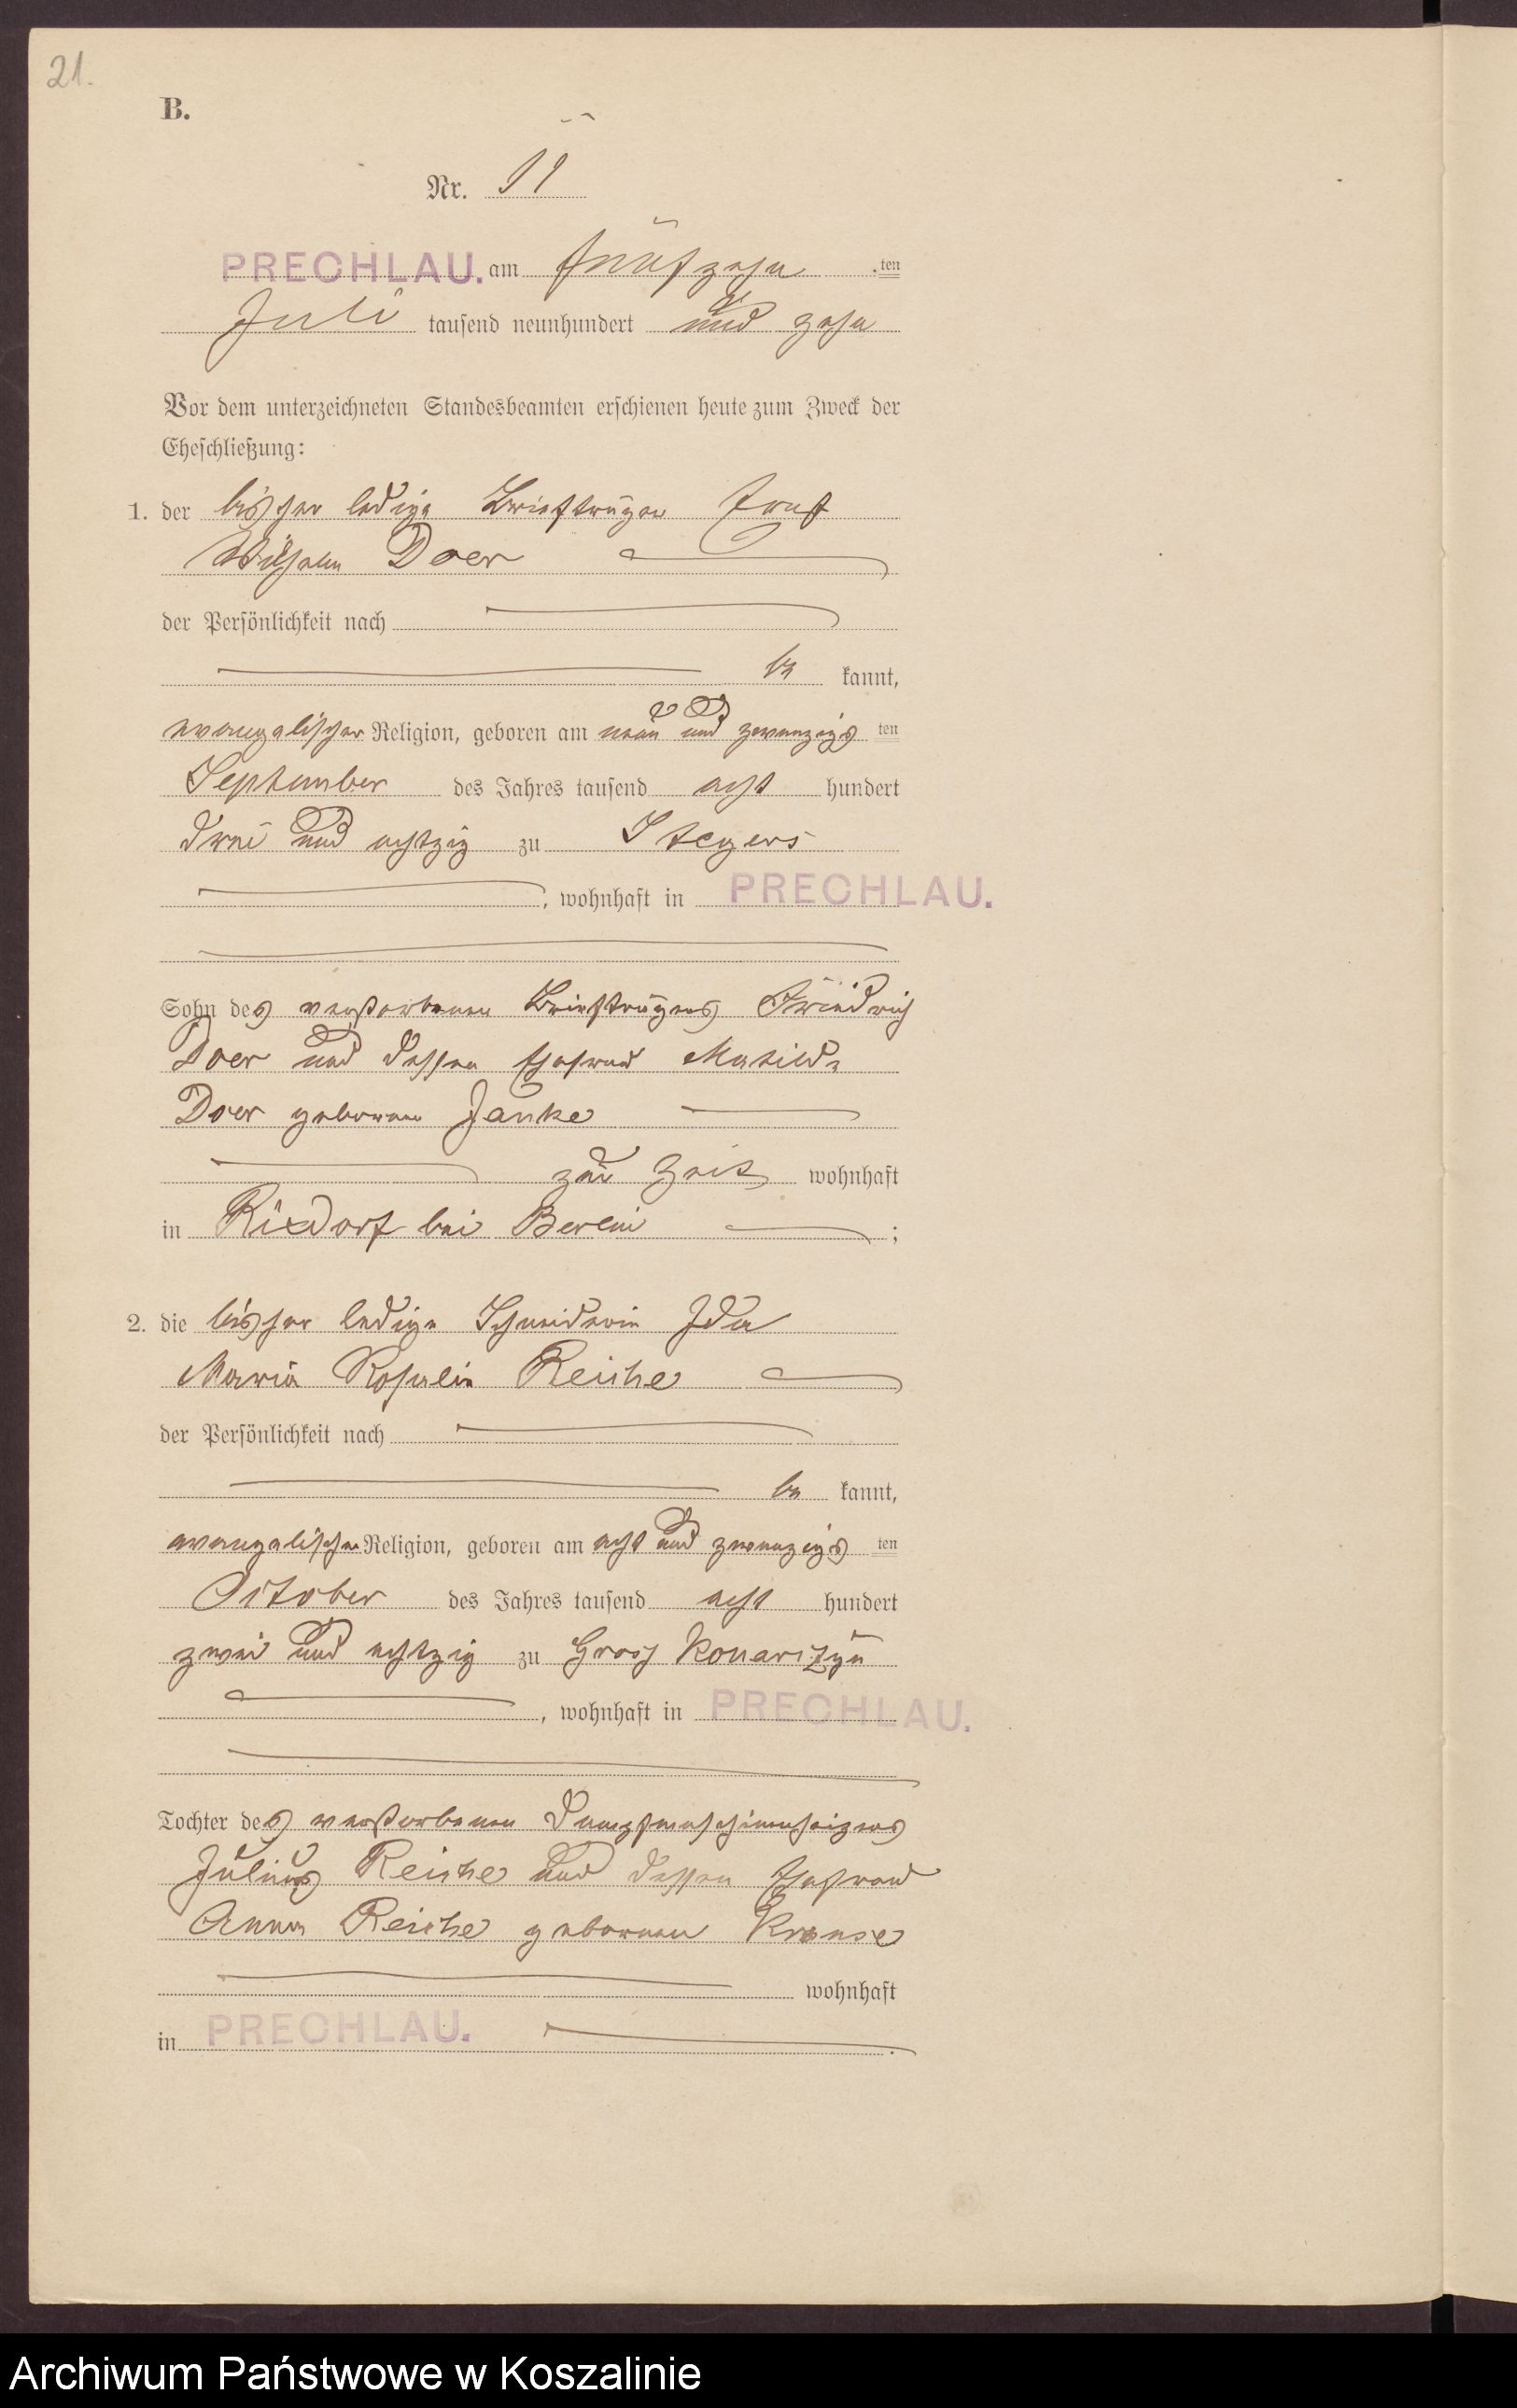 21.
B.
Nr. 11
PRECHLAU. am fünfzehn ten
Juli tausend neunhundert und zehn
Vor dem unterzeichneten Standesbeamten erschienen heute zum Zweck der
Eheschließung:
1. der bisher ledige Briefträger Ernst
Wilhelm Doer
der Persönlichkeit nach
be kannt,
evangelischer Religion, geboren am neun und zwanzigs ten
September des Jahres tausend acht hundert
drei und achtzig zu Stegers
, wohnhaft in PRECHLAU.
Sohn des verstorbenen Briefträgers Friedrich
Doer und dessen Ehefrau Matilde
Doer geborenen Janke
zur Zeit wohnhaft
in Rixdorf bei Berlin ;
2. die bisher ledige Schneiderin Ida
Maria Rosalie Reiche
der Persönlichkeit nach
be kannt,
evangelischer Religion, geboren am acht und zwanzigs ten
October des Jahres tausend acht hundert
zwei und achtzig zu Gross Konarczyn
, wohnhaft in PRECHLAU.
Tochter des verstorbenen Dampfmaschinenheizers
Julius Reiche und dessen Ehefrau
Anna Reiche geborenen Krause
wohnhaft
in PRECHLAU. .
Archiwum Państwowe w Koszalinie